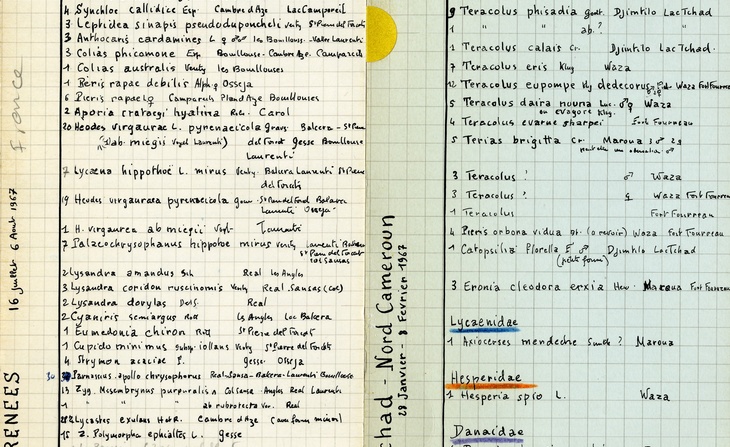 4 Synchloe callidice Esp Cambre d'Age Lac Camporeil
3 Leptidea sinapis pseudoduponcheli Verity St Pierre del Forcats
3 Anthocaris cardamines L les Bouillouses
3 Colias phicomone Esp Bouillouse - Cambre Age. Camporeils
1 Colias australis Verity les Bouillouses
1 Pieris rapae debilis Alph. Osseja
6 Pieris rapae Camporeils Bouillouses
2 Aporia crataegi hyalina Carol
20 Heodes virgaurae L. pyrenaeicola
miegii Vogel Laurenti del Forcat Gesse Bouillouse
Laurenti
7 Lycaena hippothoë L. mirus Verity Balcera Laurenti St Pierre
del Forcats
19 Heodes virgaureae pyrenaeicola Balcera
Laurenti Osseja
1 H. virgaurea ab miegii Vogel Laurenti
7 Palaeochrysophanus hippothoe mirus Verity Laurenti Balcera
2 Lysandra amandus Sch Real les Angles
3 Lysandra coridon ruscinomis Verity Real . Sansas (col)
2 Lysandra dorylas Real
2 Cyaniris semiargus Rott les Angles Lac Balcera
1 Eumedonia chiron Rott St Pierre del Forcats
1 Cupido minimus Verity St Pierre del Forcats
4 Strymon acaciae F. Gesse. Osseja
Parnassius apollo chrysophorus Real-Sansa-Balcera-Laurenti Bouillouse
13 Zyg. Mesembrynus purpuralis Col Sansa . Angles Real Laurenti
1 " ab rubrotecta Ver. Real
Lycastes exulans Cambre d'Age
15 Z. Polymorpha ephialtes L. Gesse
France
16 Juillet 6 Aout 1967
RENEES
9 Teracolus phisadia godt. Djimtilo Lac Tchad
1 " " ab. ?
1 Teracolus calais Cr. Djimtilo Lac Tchad.
7 Teracolus eris Klug Waza
12 Teracolus eupompe Klg dedecora Waza Fort Foureau
5 Teracolus daira nouna Luc. ♂♀ Waza
ou evagore Klug.
4 Teracolus evarne sharpei Fort Fourreau
5 Terias brigitta Cr Maroua 3 ♂ 2 ♀
3 Teracolus ? ♂ Waza
3 Teracolus ? ♀ Waza Fort Fourreau
1 Teracolus Fort Fourreau
4 Pieris orbona vidua (a revoir) Waza Fort Fourreau
1 Catopsilia Florella F. ♂ Djimtilo Lac Tchad
(petite forme)
3 Eronia cleodora erxia Hew. Maroua Fort Fourreau
Lycaenidae
1 Axiocerses mendeche Smith ? Maroua
Hesperidae
1 Hesperia spio L. Waza
Danaidae
chad - Nord Cameroun
28 Janvier - 8 Fevrier 1967